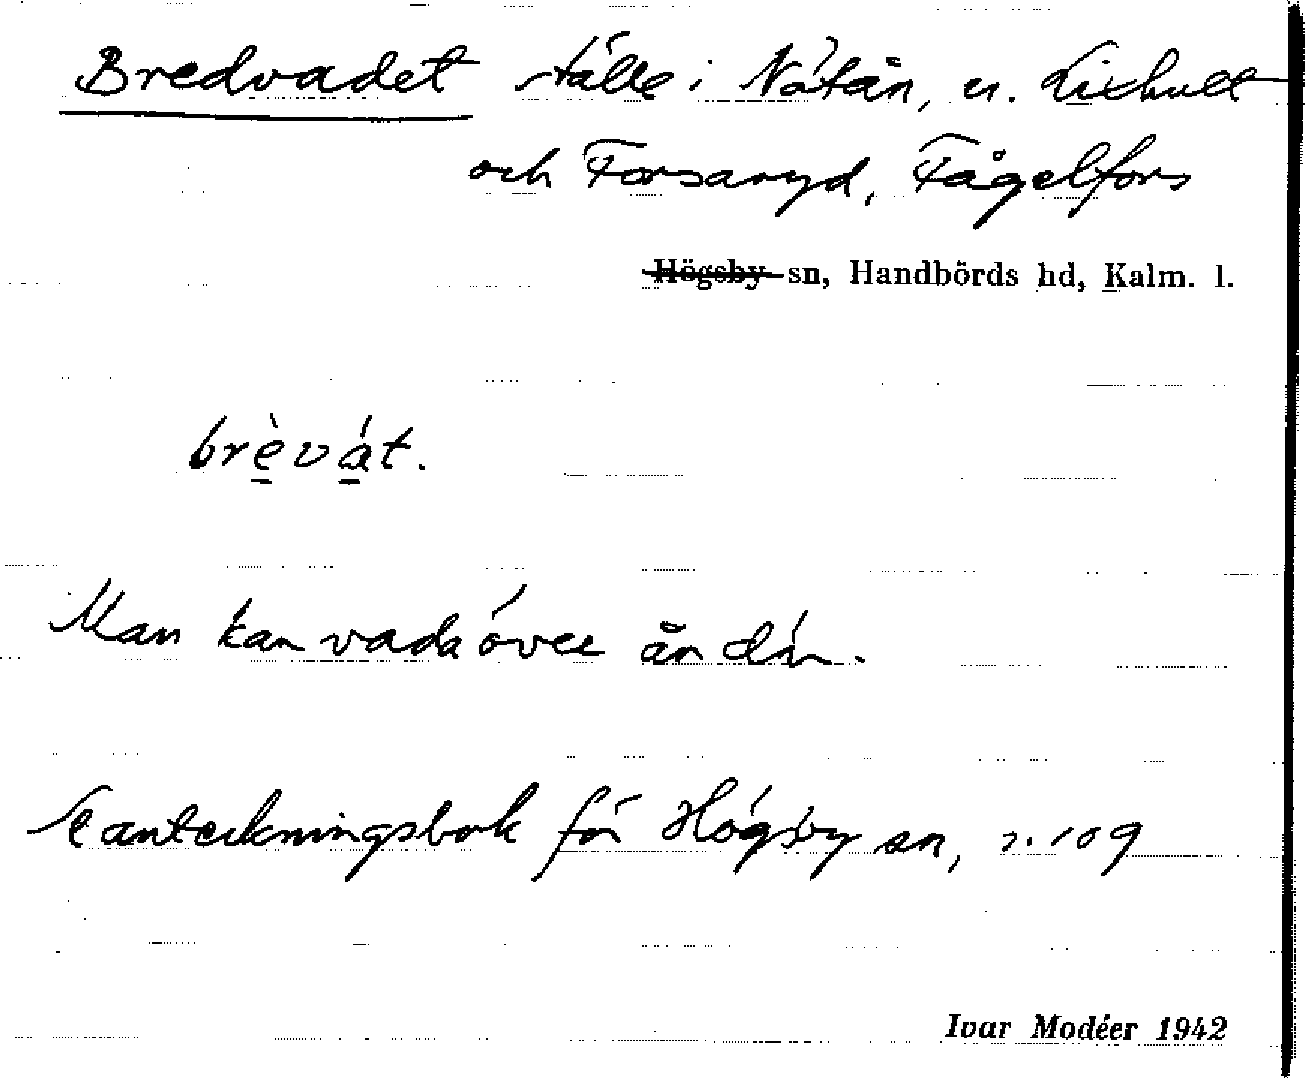 Bredvadet ställe i Nötån, n. Lixhult
och Forsaryd, Fågelfors
Högsby sn, Handbörds hd, Kalm. l.
brèvát.
Man kan vada över ån där.
Se anteckningsbok för Högsby sn, s. 109
Ivar Modéer 1942